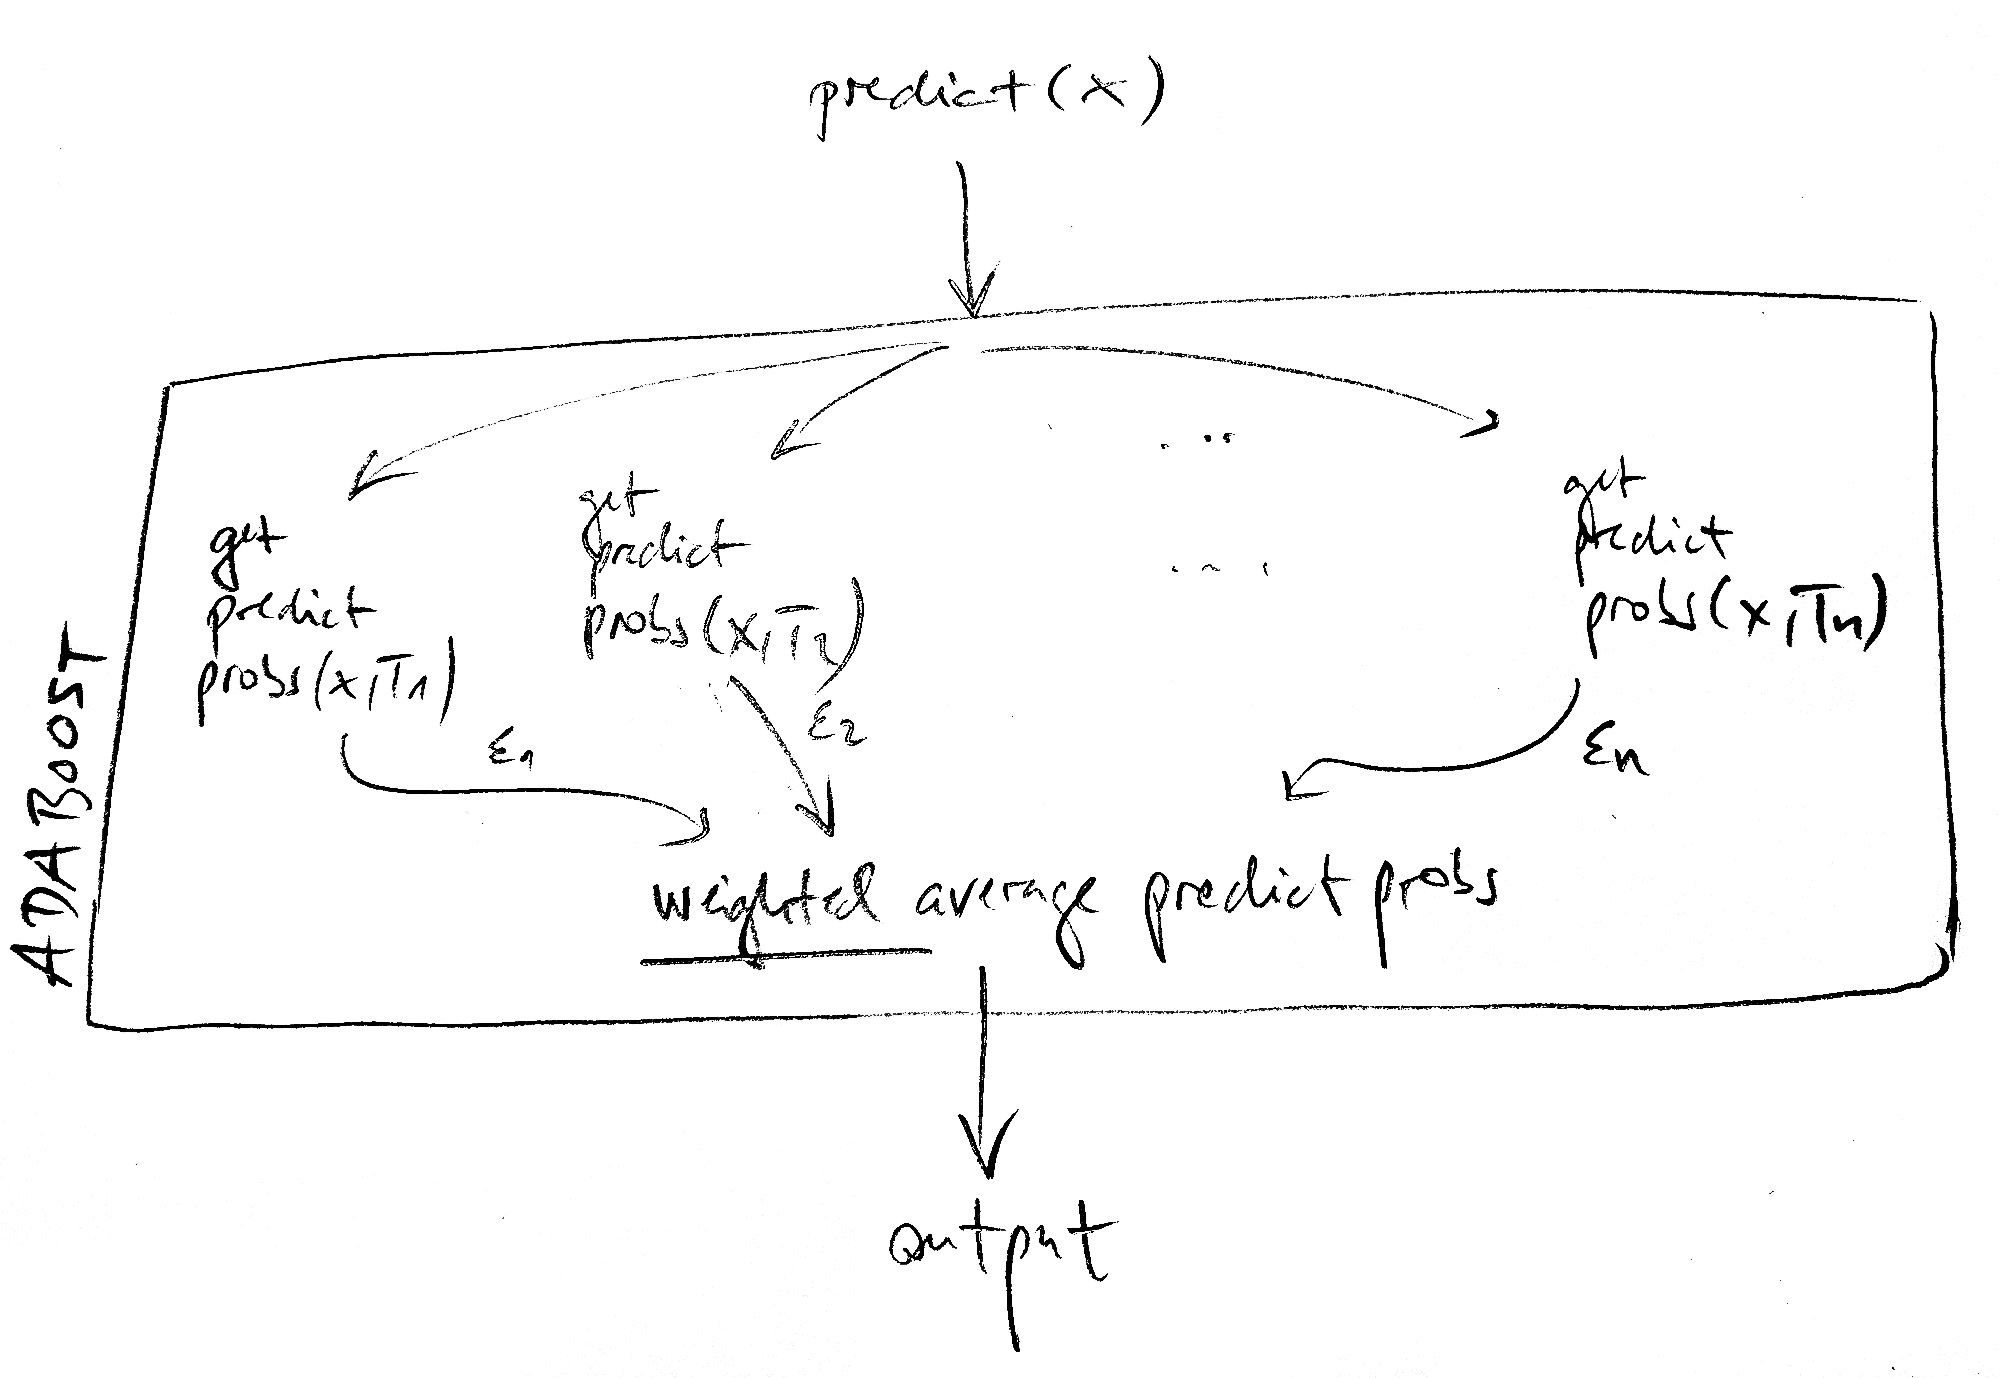 predict(x)
get
predict
probs(x,T1)
get
predict
probs(x,T2)
...
...
get
predict
probs(x,Tn)
ε1
ε2
εn
weighted average predict probs
output
ADABOOST